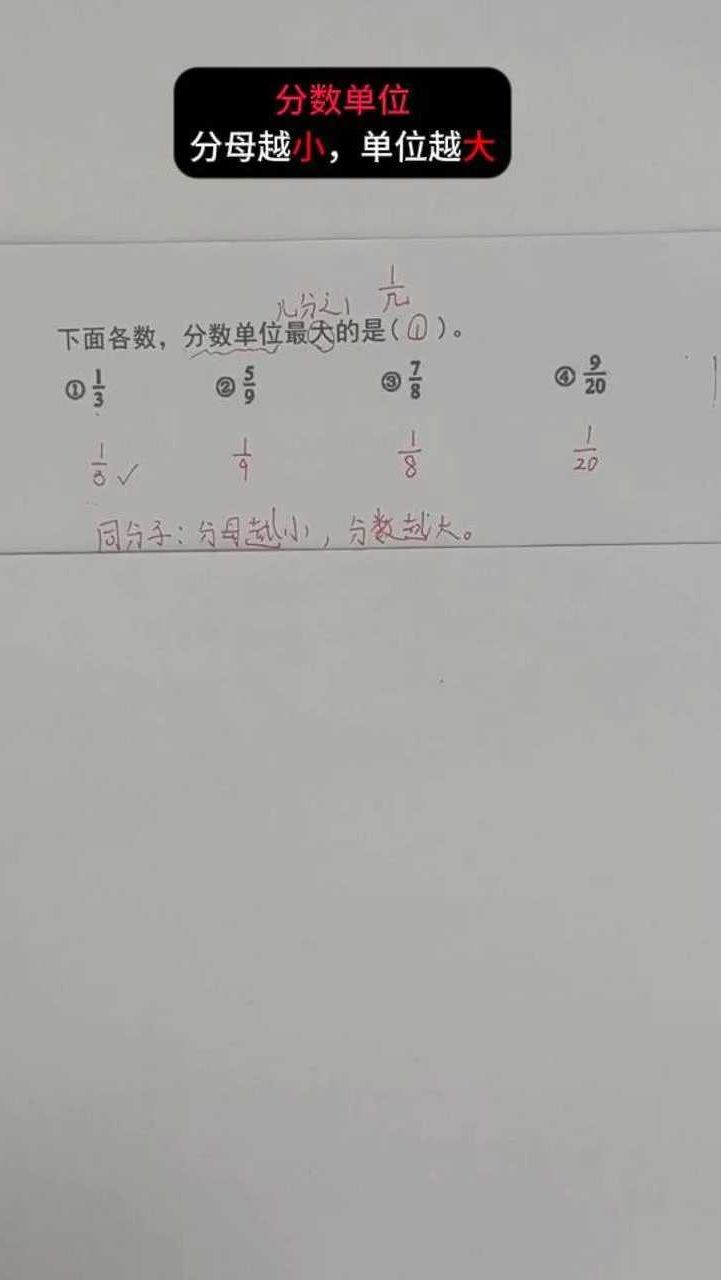 分数单位
分母越小，单位越大
几分之1 1/几
下面各数，分数单位最大的是(①)。
①1/3 ②5/9 ③7/8 ④9/20
1/3✓ 1/9 1/8 1/20
同分子：分母越小，分数越大。